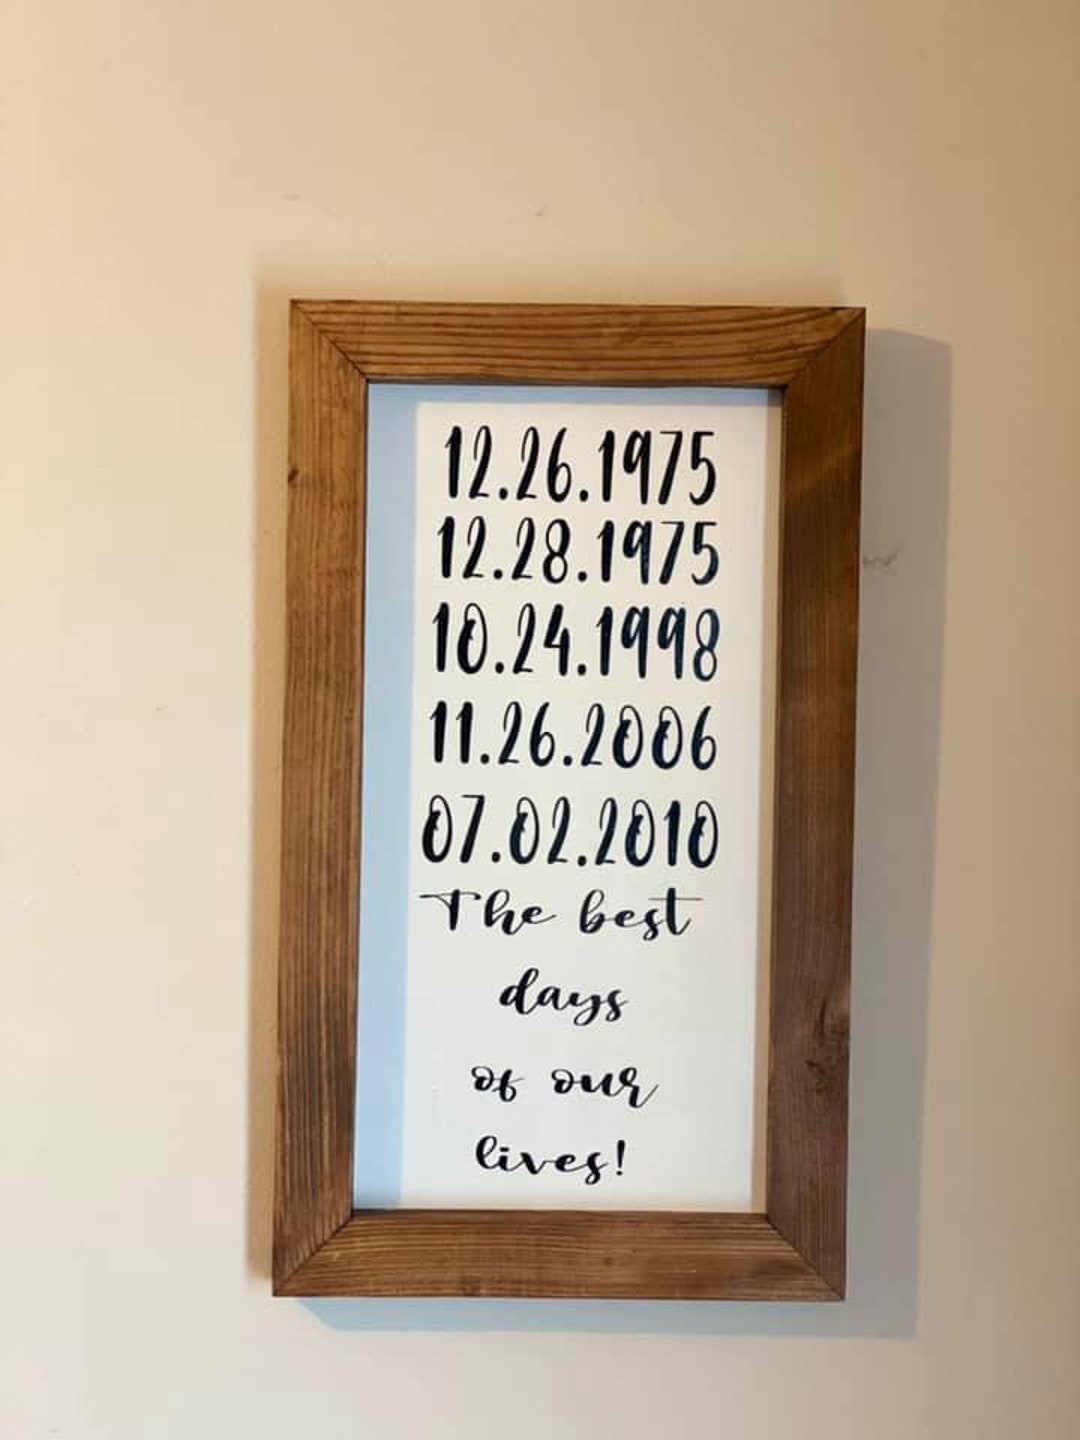 12.26.1975
12.28.1975
10.24.1998
11.26.2006
07.02.2010
The best
days
of our
lives!